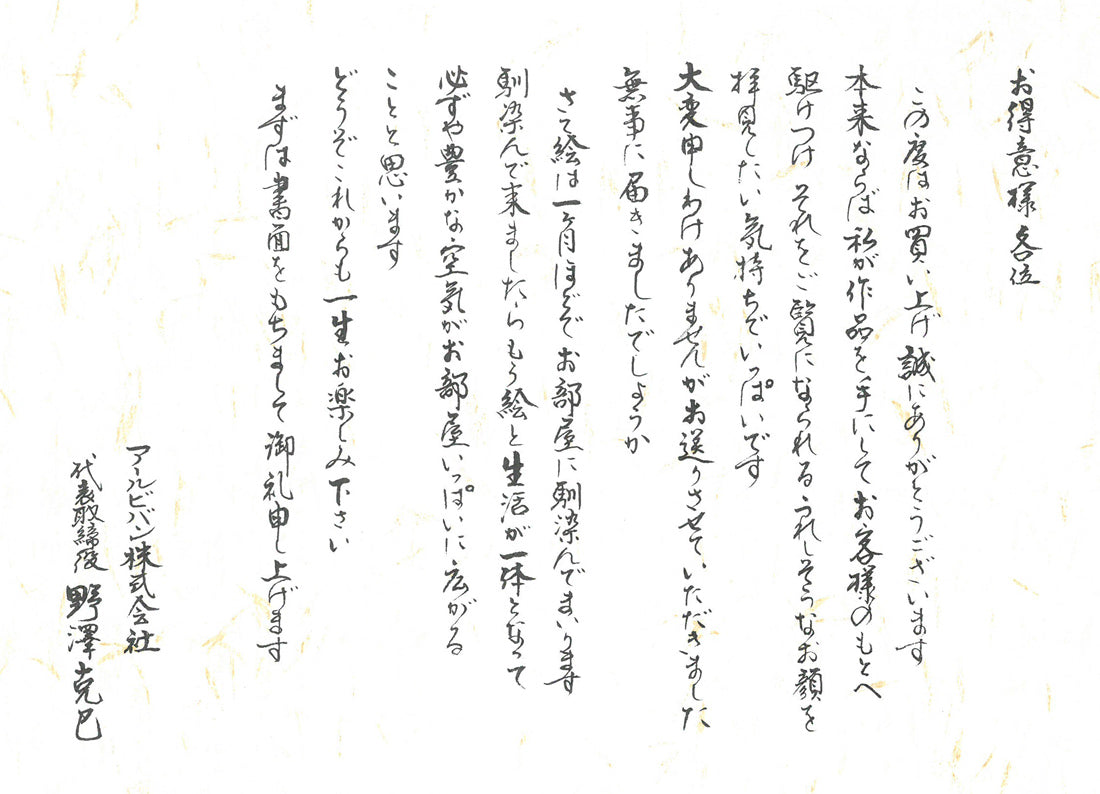 お得意様各位
この度はお買い上げ誠にありがとうございます
本来ならば私が作品を手にしてお客様のもとへ
駆けつけ それをご覧になられるうれしそうなお顔を
拝見したい気持ちでいっぱいです
大変申しわけありませんがお送りさせていただきました
無事に届きましたでしょうか
さて絵は一ヶ月ほどでお部屋に馴染んでまいります
馴染んで来ましたらもう絵と生活が一体となって
必ずや豊かな空気がお部屋いっぱいに広がる
ことと思います
どうぞこれからも一生お楽しみ下さい
まずは書面をもちまして御礼申し上げます
アールビバン株式会社
代表取締役 野澤克巳